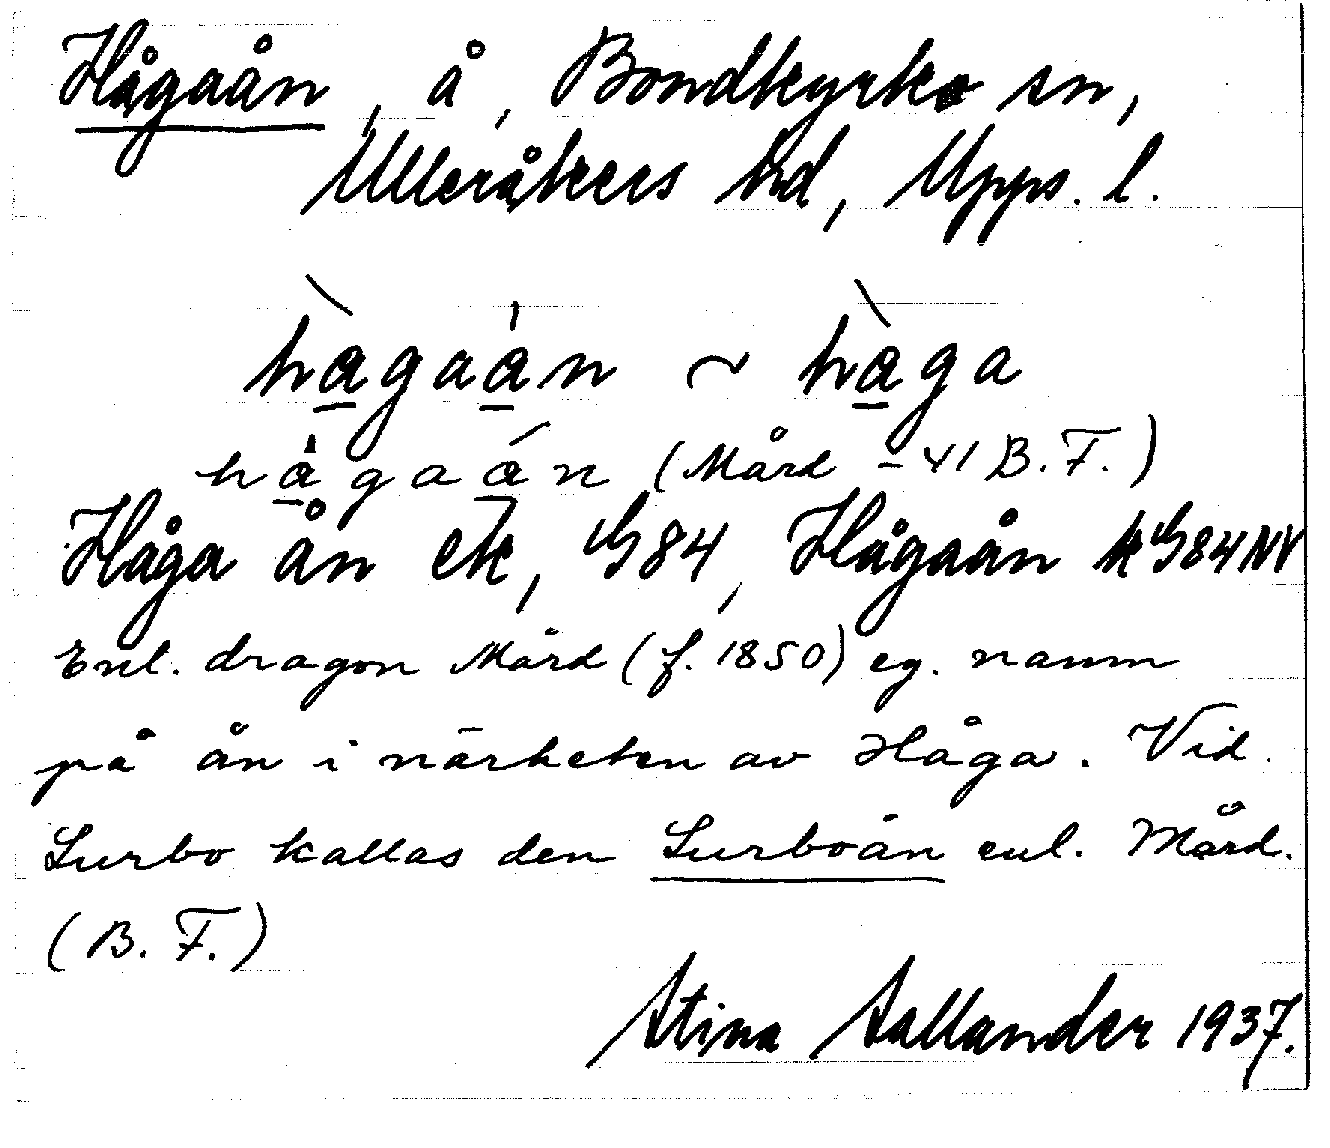 Hågaån, å, Bondkyrko sn,
Ulleråkers hd, Upps. l.
hàgaán ~ hàga
hàgaán (Mård -41 B.F.)
Håga ån ek, G84, Hågaån k G84NV
Enl. dragon Mård (f. 1850) eg. namn
på ån i närheten av Håga. Vid
Surbo kallas den Surboån enl. Mård.
(B. F.)
Stina Sallander 1937.